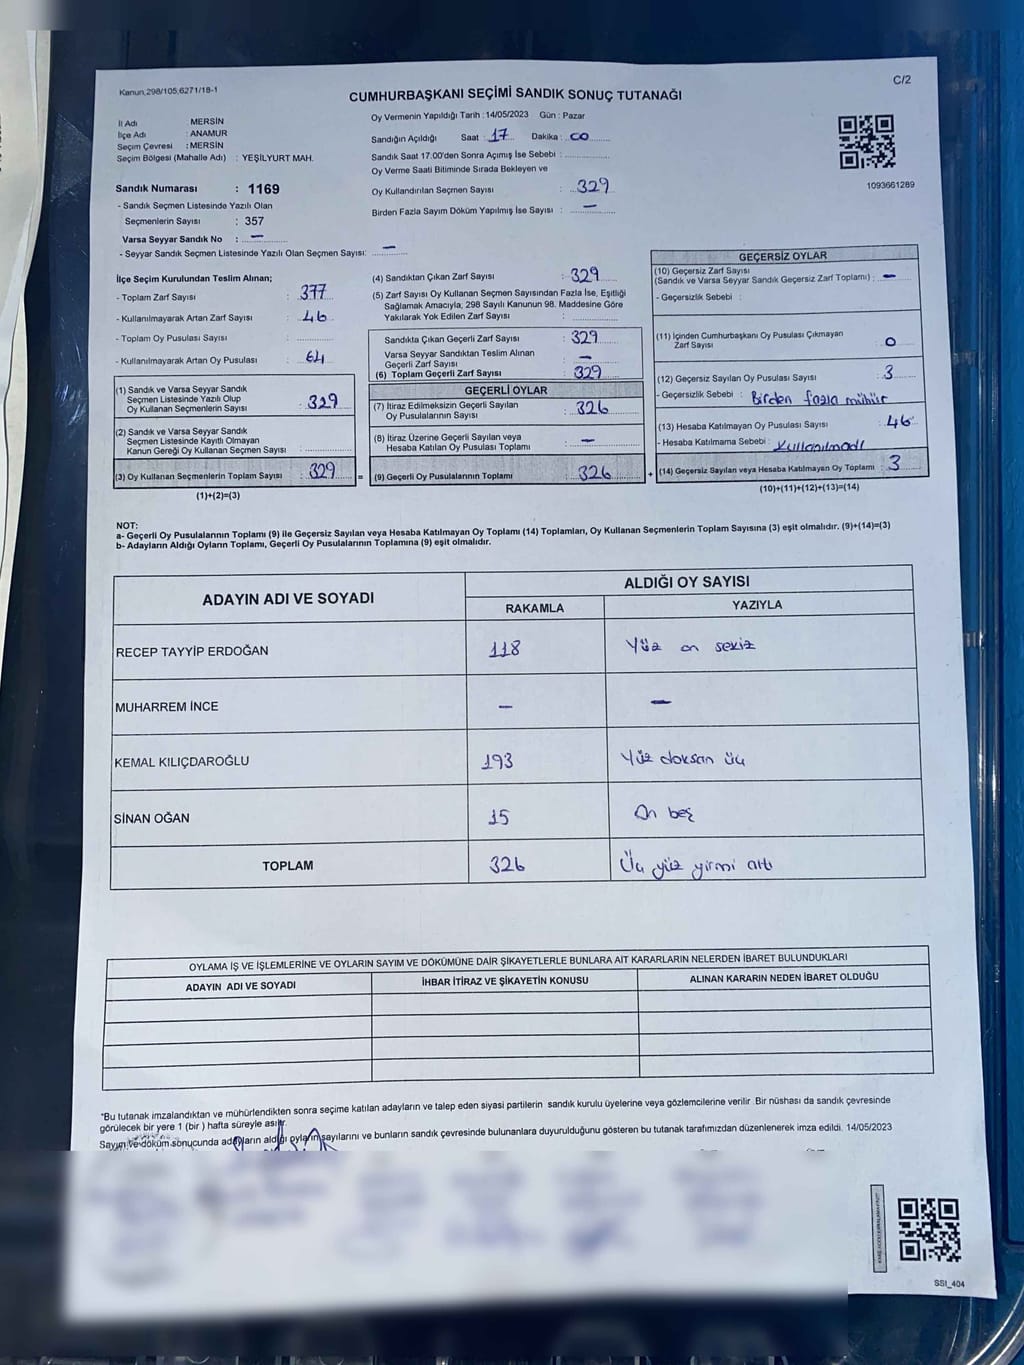 Kanun,298/105,6271/18-1
C/2
CUMHURBAŞKANI SEÇİMİ SANDIK SONUÇ TUTANAĞI
İl Adı MERSİN
İlçe Adı : ANAMUR
Seçim Çevresi : MERSİN
Seçim Bölgesi (Mahalle Adı) : YEŞİLYURT MAH.
Oy Vermenin Yapıldığı Tarih : 14/05/2023 Gün : Pazar
Sandığın Açıldığı Saat : 17 Dakika : 00
Sandık Saat 17:00'den Sonra Açımış İse Sebebi :
Oy Verme Saati Bitiminde Sırada Bekleyen ve
Oy Kullandırılan Seçmen Sayısı : 329
Birden Fazla Sayım Döküm Yapılmış İse Sayısı : —
1093661289
Sandık Numarası : 1169
- Sandık Seçmen Listesinde Yazılı Olan
Seçmenlerin Sayısı : 357
Varsa Seyyar Sandık No : —
- Seyyar Sandık Seçmen Listesinde Yazılı Olan Seçmen Sayısı: —
İlçe Seçim Kurulundan Teslim Alınan;
- Toplam Zarf Sayısı : 377
- Kullanılmayarak Artan Zarf Sayısı : 46
- Toplam Oy Pusulası Sayısı :
- Kullanılmayarak Artan Oy Pusulası : 64
(1) Sandık ve Varsa Seyyar Sandık
Seçmen Listesinde Yazılı Olup
Oy Kullanan Seçmenlerin Sayısı : 329
(2) Sandık ve Varsa Seyyar Sandık
Seçmen Listesinde Kayıtlı Olmayan
Kanun Gereği Oy Kullanan Seçmen Sayısı :
(3) Oy Kullanan Seçmenlerin Toplam Sayısı : 329
(1)+(2)=(3)
(4) Sandıktan Çıkan Zarf Sayısı : 329
(5) Zarf Sayısı Oy Kullanan Seçmen Sayısından Fazla İse, Eşitliği
Sağlamak Amacıyla, 298 Sayılı Kanunun 98. Maddesine Göre
Yakılarak Yok Edilen Zarf Sayısı :
Sandıkta Çıkan Geçerli Zarf Sayısı : 329
Varsa Seyyar Sandıktan Teslim Alınan
Geçerli Zarf Sayısı : —
(6) Toplam Geçerli Zarf Sayısı : 329
GEÇERLİ OYLAR
(7) İtiraz Edilmeksizin Geçerli Sayılan
Oy Pusulalarının Sayısı : 326
(8) İtiraz Üzerine Geçerli Sayılan veya
Hesaba Katılan Oy Pusulası Toplamı : —
= (9) Geçerli Oy Pusulalarının Toplamı : 326 +
GEÇERSİZ OYLAR
(10) Geçersiz Zarf Sayısı
(Sandık ve Varsa Seyyar Sandık Geçersiz Zarf Toplamı) : —
- Geçersizlik Sebebi :
(11) İçinden Cumhurbaşkanı Oy Pusulası Çıkmayan
Zarf Sayısı : 0
(12) Geçersiz Sayılan Oy Pusulası Sayısı : 3
- Geçersizlik Sebebi : Birden fazla mühür
(13) Hesaba Katılmayan Oy Pusulası Sayısı : 46
- Hesaba Katılmama Sebebi : Kullanılmadı
(14) Geçersiz Sayılan veya Hesaba Katılmayan Oy Toplamı : 3
(10)+(11)+(12)+(13)=(14)
NOT:
a- Geçerli Oy Pusulalarının Toplamı (9) ile Geçersiz Sayılan veya Hesaba Katılmayan Oy Toplamı (14) Toplamları, Oy Kullanan Seçmenlerin Toplam Sayısına (3) eşit olmalıdır. (9)+(14)=(3)
b- Adayların Aldığı Oyların Toplamı, Geçerli Oy Pusulalarının Toplamına (9) eşit olmalıdır.
ADAYIN ADI VE SOYADI ALDIĞI OY SAYISI
RAKAMLA YAZIYLA
RECEP TAYYİP ERDOĞAN 118 Yüz on sekiz
MUHARREM İNCE — —
KEMAL KILIÇDAROĞLU 193 Yüz doksan üç
SİNAN OĞAN 15 On beş
TOPLAM 326 Üç yüz yirmi altı
OYLAMA İŞ VE İŞLEMLERİNE VE OYLARIN SAYIM VE DÖKÜMÜNE DAİR ŞİKAYETLERLE BUNLARA AİT KARARLARIN NELERDEN İBARET BULUNDUKLARI
ADAYIN ADI VE SOYADI İHBAR İTİRAZ VE ŞİKAYETİN KONUSU ALINAN KARARIN NEDEN İBARET OLDUĞU
*Bu tutanak imzalandıktan ve mühürlendikten sonra seçime katılan adayların ve talep eden siyasi partilerin sandık kurulu üyelerine veya gözlemcilerine verilir .Bir nüshası da sandık çevresinde
görülecek bir yere 1 (bir ) hafta süreyle asılır.
Sayım ve döküm sonucunda adayların aldığı oyların sayılarını ve bunların sandık çevresinde bulunanlara duyurulduğunu gösteren bu tutanak tarafımızdan düzenlenerek imza edildi. 14/05/2023
SSI_404